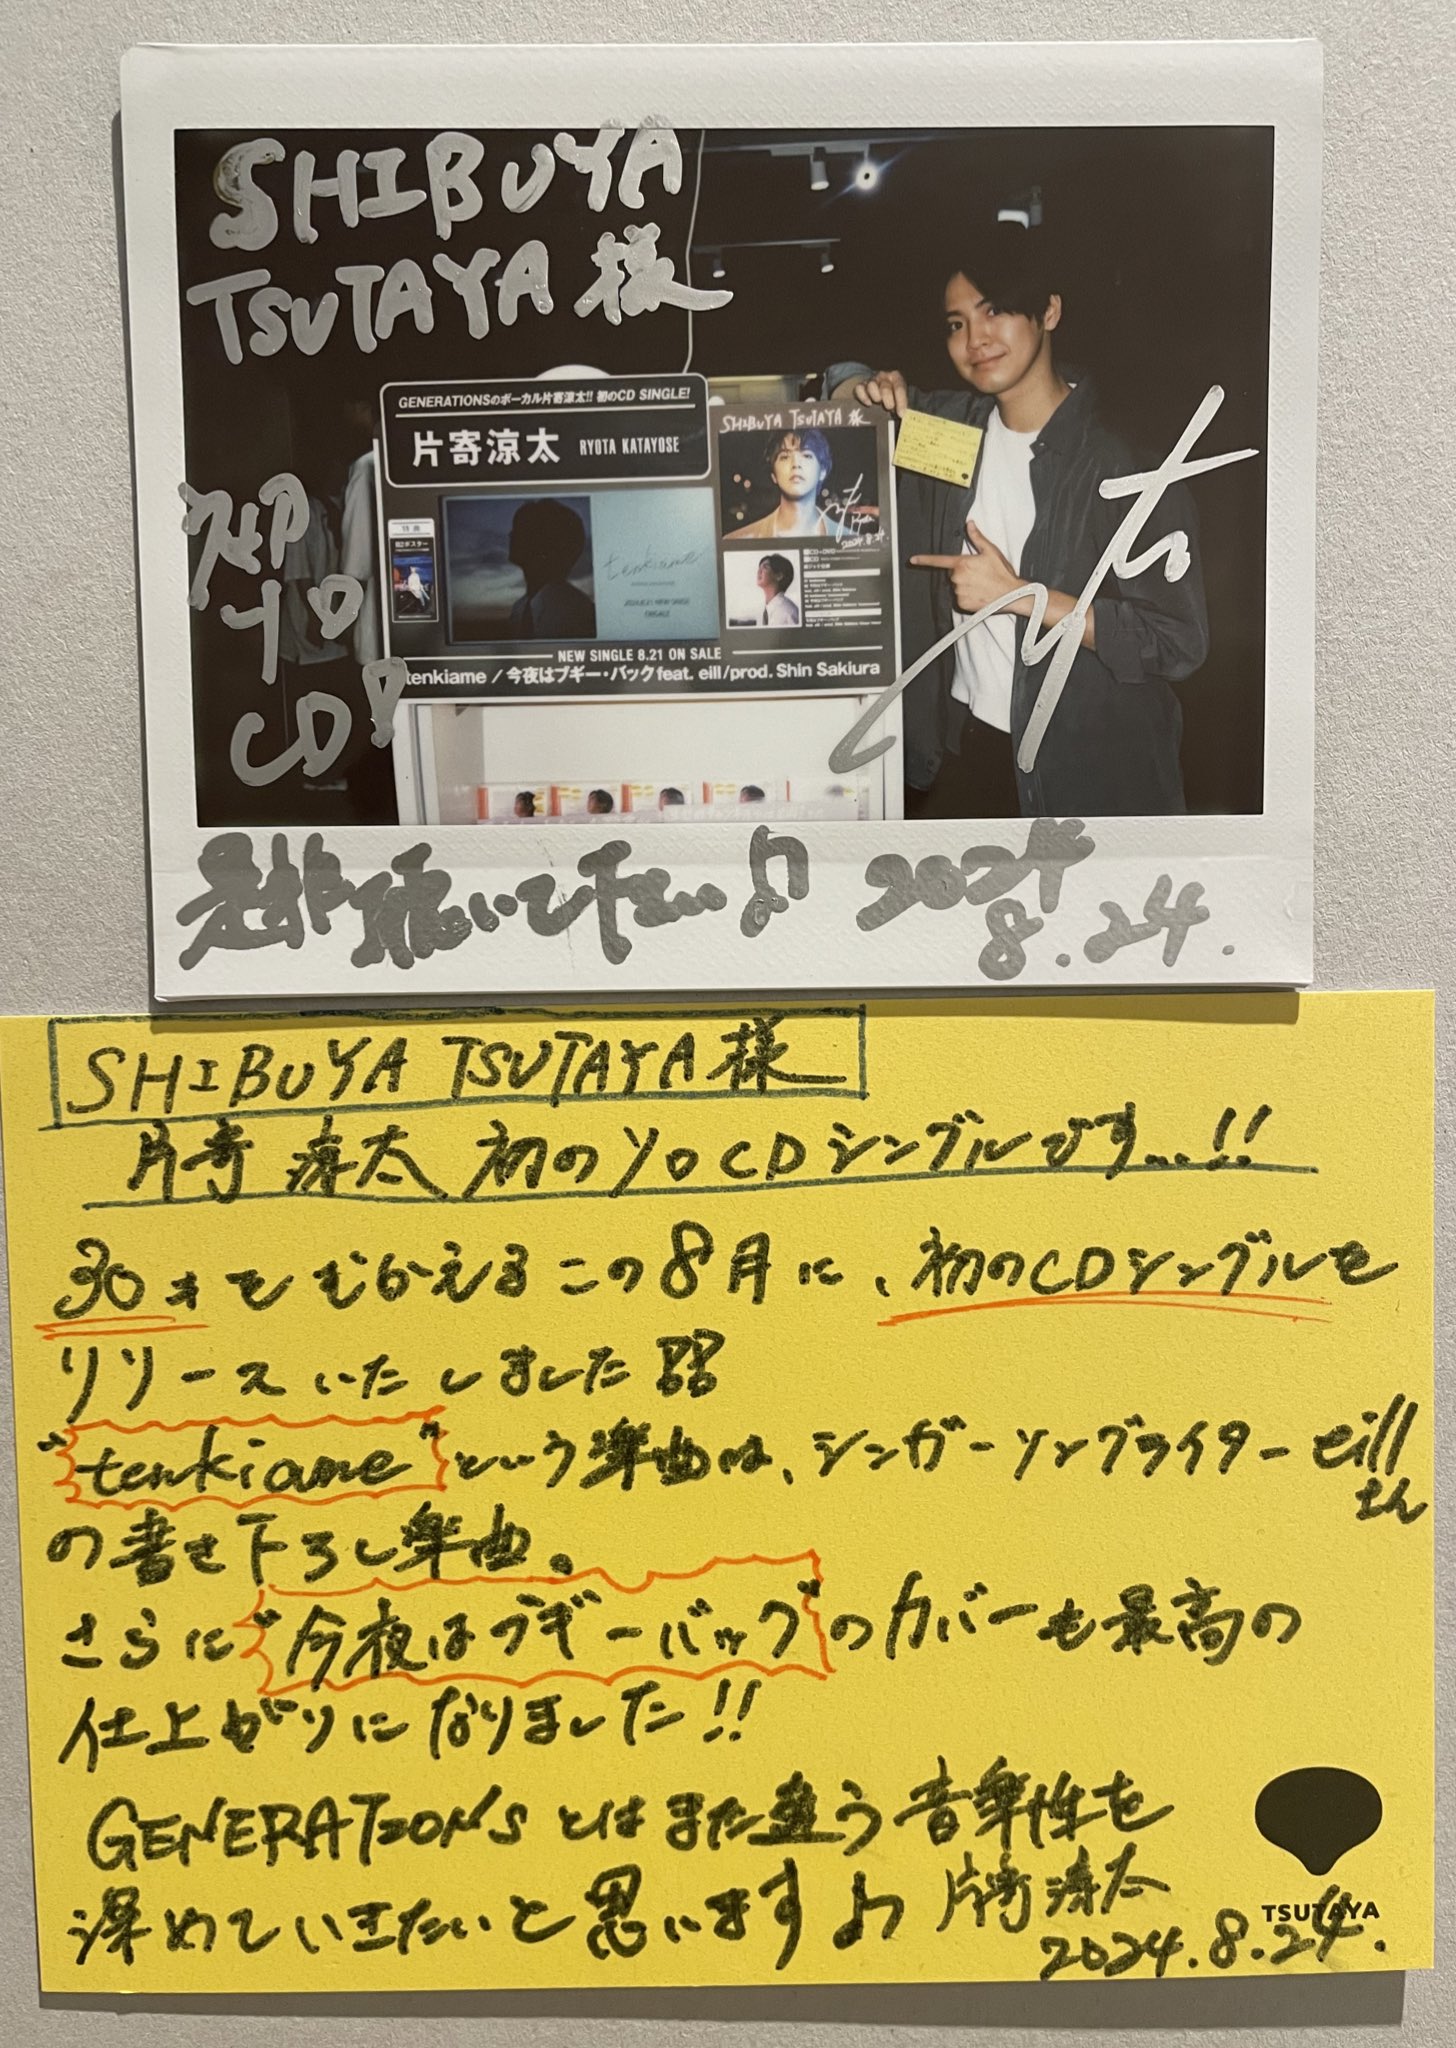 SHIBUYA
TSUTAYA 様
初
ソロ
CD!
GENERATIONSのボーカル片寄涼太!! 初のCD SINGLE!
片寄涼太 RYOTA KATAYOSE
SHIBUYA TSUTAYA 様
2024.8.24.
特典
B2ポスター
tenkiame
CD+DVD
CD
NEW SINGLE 8.21 ON SALE
tenkiame / 今夜はブギー・バック feat. eill/prod. Shin Sakiura
是非聴いて下さい♪ 2024
8.24.
SHIBUYA TSUTAYA 様
片寄 涼太 初のソロCDシングルです...!!
30才をむかえるこの8月に、初のCDシングルを
リリースいたしました!!
"tenkiame"という楽曲は、シンガーソングライターeill
さん
の書き下ろし楽曲。
さらに"今夜はブギーバック"のカバーも最高の
仕上がりになりました!!
GENERATIONSとはまた違う音楽性を
深めていきたいと思います♪ 片寄涼太
2024.8.24.
TSUTAYA